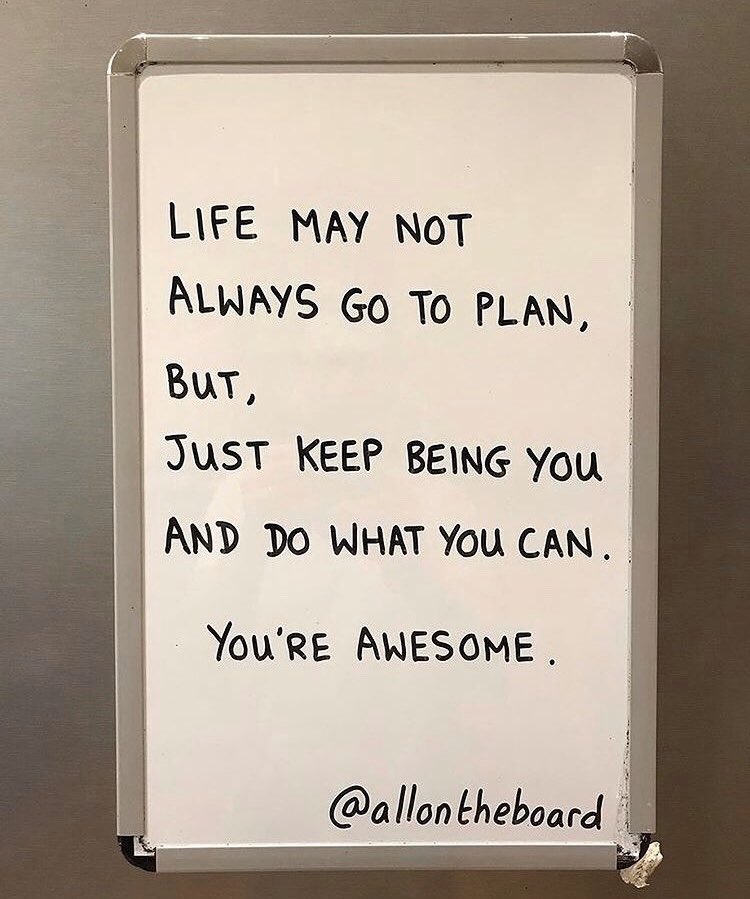 LIFE MAY NOT
ALWAYS GO TO PLAN,
BUT,
JUST KEEP BEING YOU
AND DO WHAT YOU CAN.
YOU'RE AWESOME.
@allontheboard